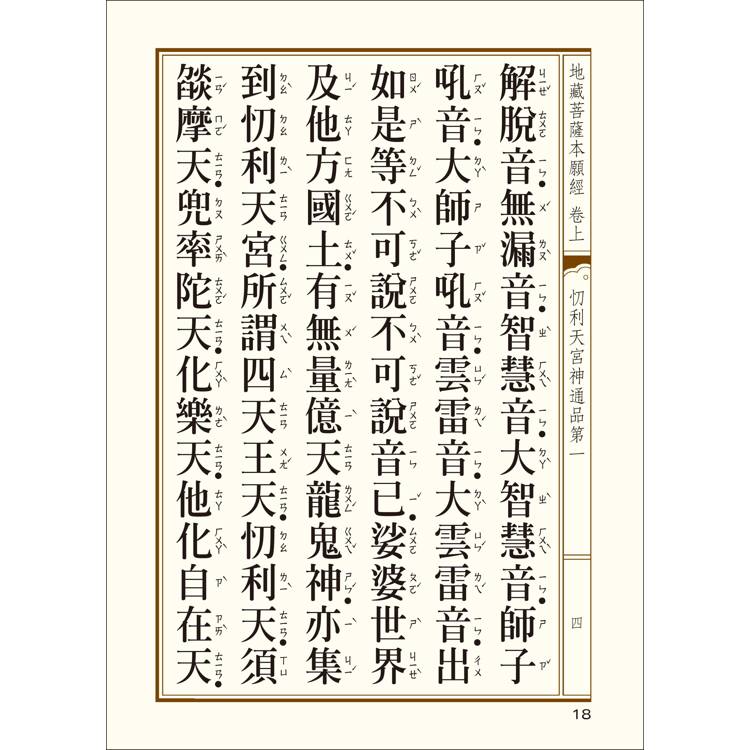 地藏菩薩本願經 卷上
忉利天宮神通品第一
四
解脫音無漏音智慧音大智慧音師子
吼音大師子吼音雲雷音大雲雷音出
如是等不可說不可說音已娑婆世界
及他方國土有無量億天龍鬼神亦集
到忉利天宮所謂四天王天忉利天須
燄摩天兜率陀天化樂天他化自在天
18